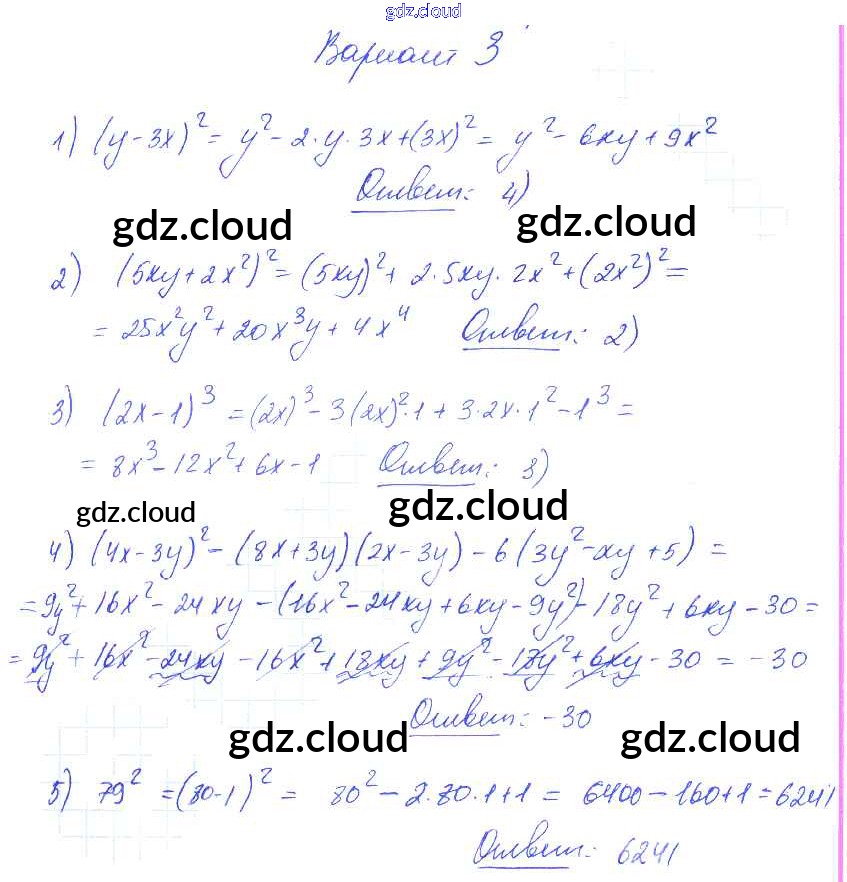 gdz.cloud
Вариант 3
1) (y-3x)² = y² - 2·y·3x+(3x)² = y² - 6xy + 9x²
Ответ: 4)
gdz.cloud gdz.cloud
2) (5xy+2x²)² = (5xy)² + 2·5xy·2x² + (2x²)² =
= 25x²y² + 20x³y + 4x⁴ Ответ: 2)
3) (2x-1)³ = (2x)³ - 3(2x)²·1 + 3·2x·1² - 1³ =
= 8x³ - 12x² + 6x - 1 Ответ: 3)
gdz.cloud gdz.cloud
4) (4x-3y)² - (8x+3y)(2x-3y) - 6(3y²-xy+5) =
= 9y² + 16x² - 24xy - (16x² - 24xy + 6xy - 9y²) - 18y² + 6xy - 30 =
= 9y² + 16x² - 24xy - 16x² + 18xy + 9y² - 18y² + 6xy - 30 = -30
Ответ: -30
gdz.cloud gdz.cloud
5) 79² = (80-1)² = 80² - 2·80·1+1 = 6400 - 160+1 = 6241
Ответ: 6241